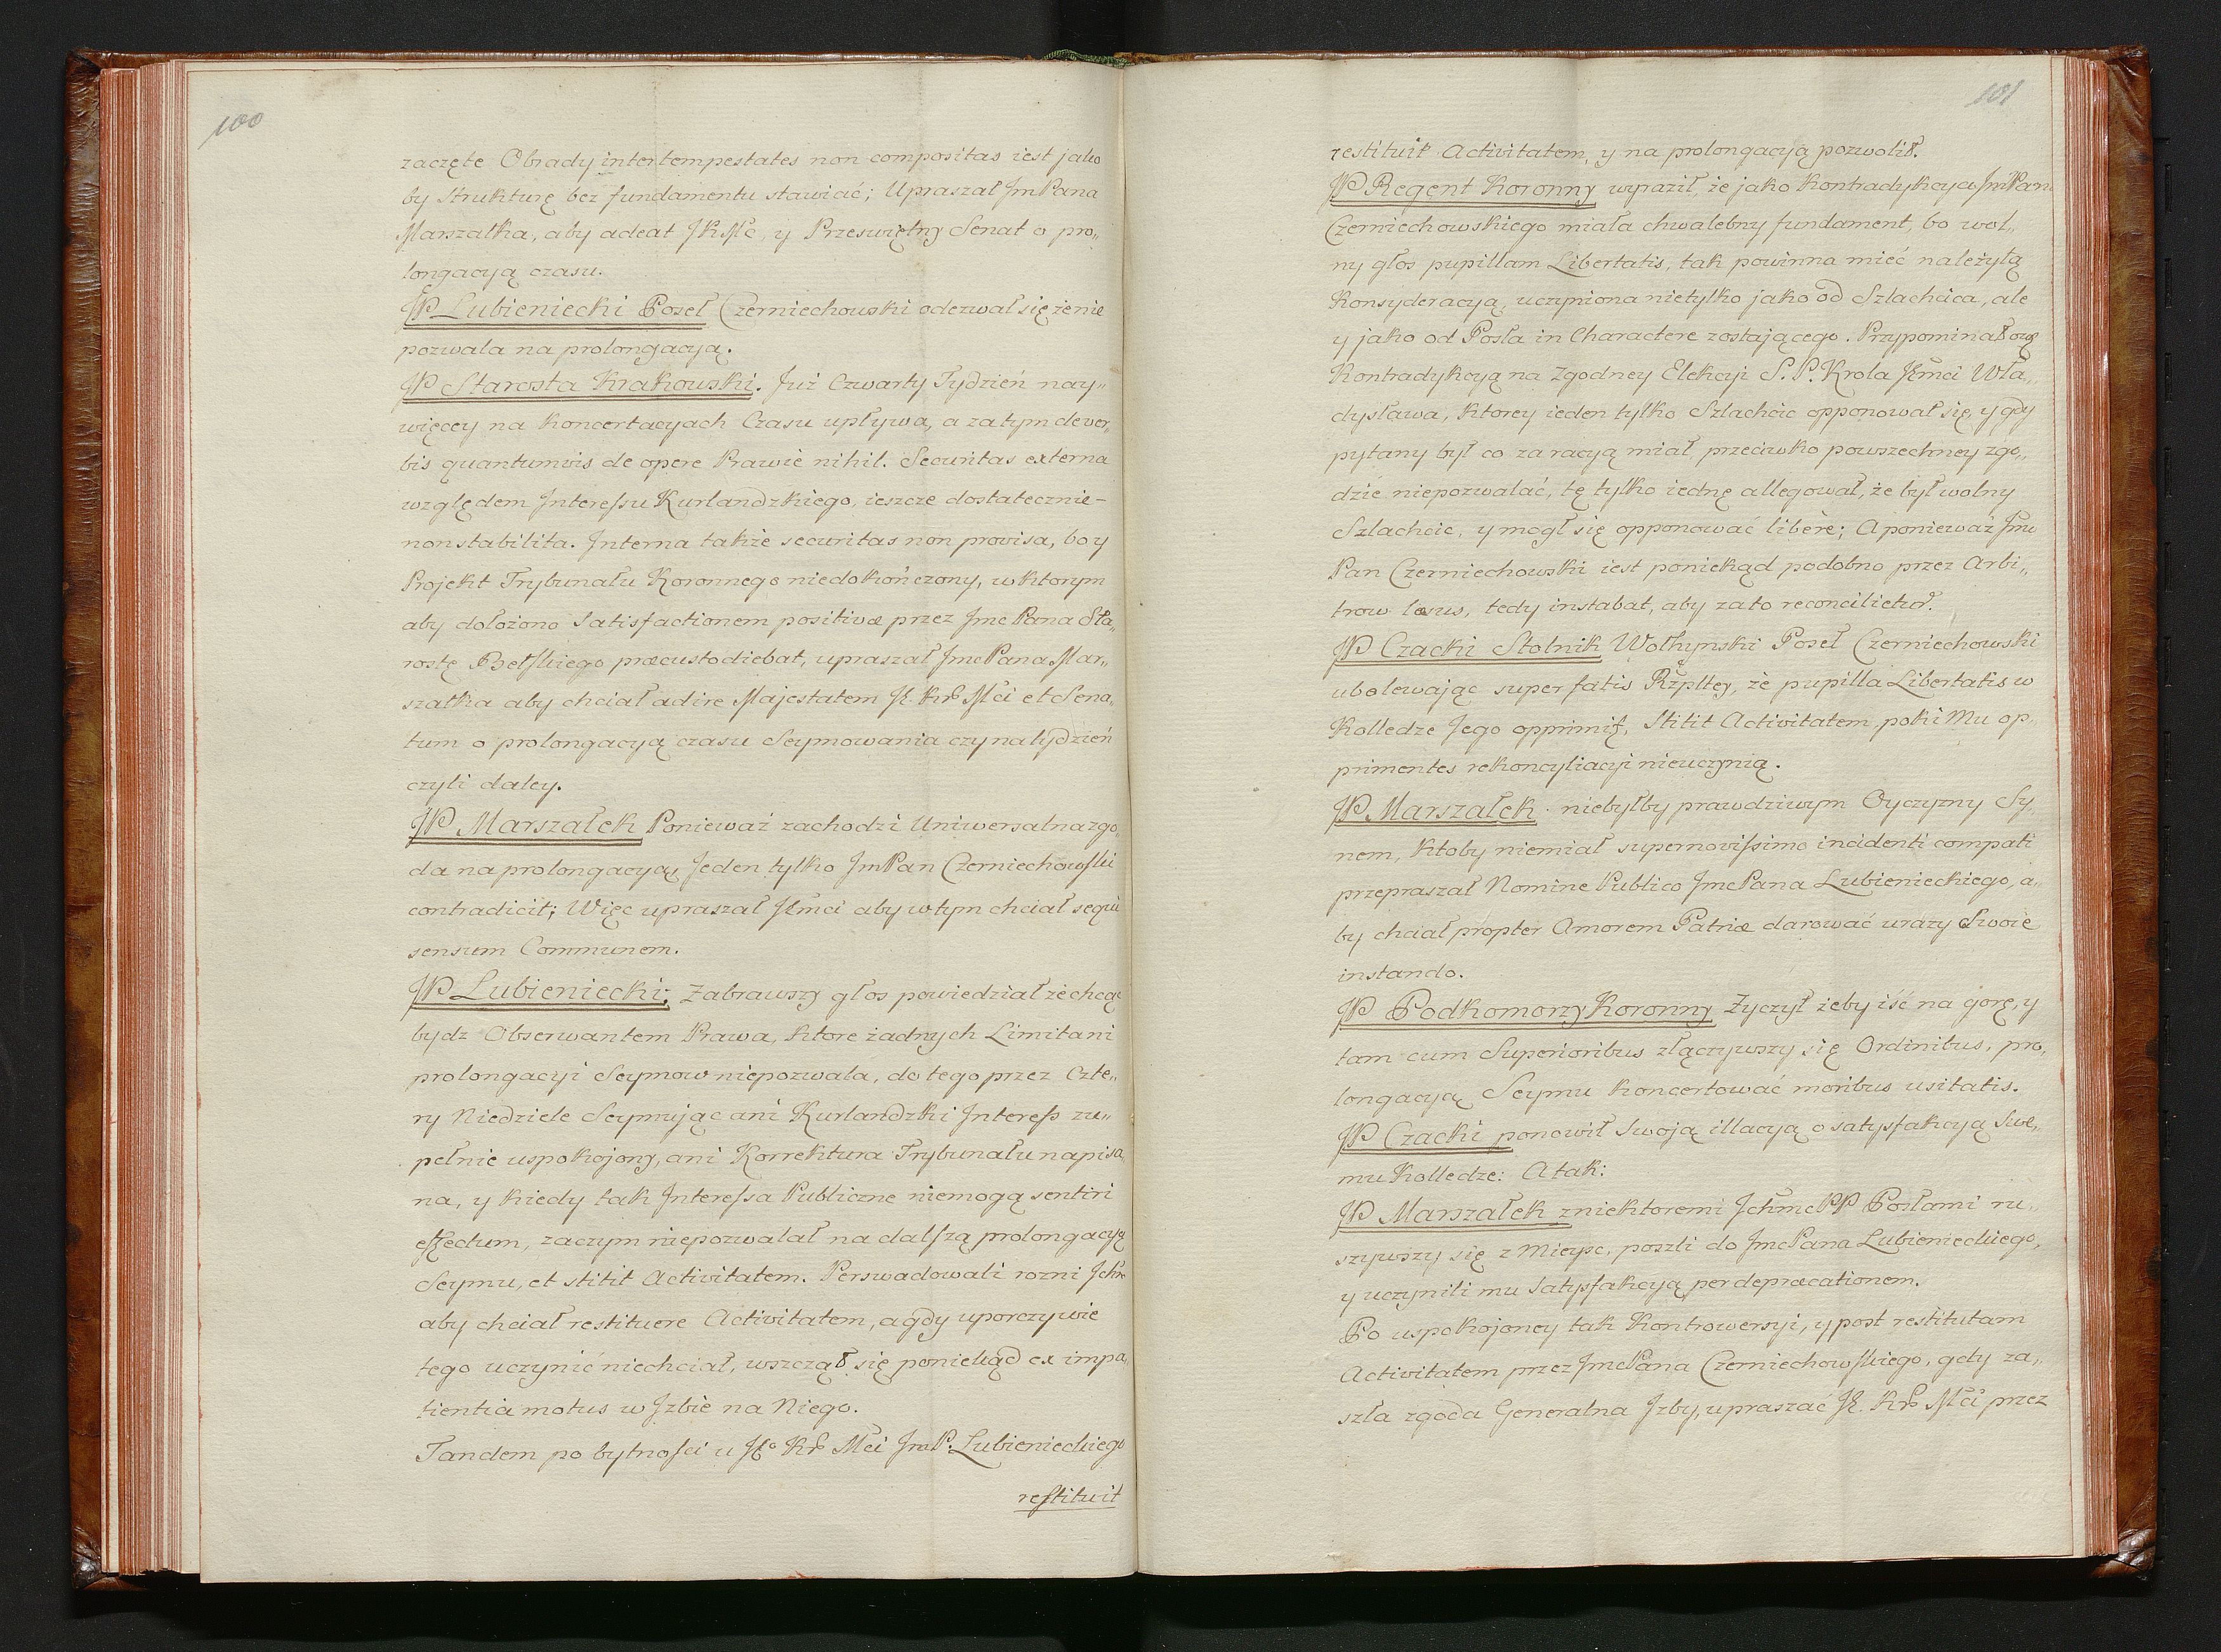 100
zaczęte Obrady inter tempestates non compositas iest jako
by Strukturę bez fundamentu stawiać; Upraszał JmPana
Marszałka, aby adeat JKMć, y Przeświętny Senat o pro„
longacyą czasu.
JP Lubieniecki Poseł Czerniechowski odezwał się że nie
pozwala na prolongacyą.
JP Starosta Krakowski. Już Czwarty Tydzień nay„
więcey na Koncertacyach Czasu upływa, a za tym de ver„
bis quantumvis de opere Prawie nihil. Securitas externa
względem Interessu Kurlandzkiego, ieszcze dostatecznie-
non stabilita. Interna także securitas non provisa, bo y
Projekt Trybunału Koronnego niedokończony, w ktorym
aby dołożono Satisfactionem positivæ przez Jmc Pana Sta„
rostę Bełskiego præcustodiebat, upraszał Jmc Pana Mar„
szałka aby chciał adire Majestatem JK. Kr Mći et Sena„
tum o prolongacyą czasu Seymowania czy na tydzień
czyli daley.
JP Marszałek Ponieważ zachodzi Uniwersalna zgo„
da na prolongacyą, Jeden tylko JmPan Czerniechowski
contradicit; Więc upraszał JKmci aby w tym chciał sequi
sensum Communem.
JP Lubieniecki: Zabrawszy głos powiedział że chcąc
bydz Obserwantem Prawa, ktore żadnych Limit ani
prolongacyi Seymow niepozwala, do tego przez Czte„
ry Niedziele Seymując ani Kurlandzki Interess zu„
pełnie uspokojony, ani Korrektura Trybunału napisa„
na, y kiedy tak Interessa Publiczne niemogą sentiri
effectum, zaczym niepozwalał na dalszą prolongacyą
Seymu, et stitit Activitatem. Perswadowali rozni Jchm
aby chciał restituere Activitatem, a gdy uporczywie
tego uczynić niechciał, wszczął się poniekąd ex impa„
tientia motus w Jzbie na Niego.
Tandem po bytności u JKo Kr Mći JmP. Lubienieckiego
restituit
101
restituit Activitatem, y na prolongacyą pozwolił.
JP Regent Koronny wyraził, że jako Kontradykcya JmPana
Czerniechowskiego miała chwalebny fundament, bo wol„
ny głos pupillam Libertatis, tak powinna mieć należytą
Konsyderacyą, uczyniona nietylko jako od Szlachcica, ale
y jako od Posła in Charactere zostającego. Przypominał owę
Kontradykcyą na Zgodney Elekcyi S. P. Krola Jmci Wła„
dysława, ktorey ieden tylko Szlachcic opponował się, y gdy
pytany był co za racyą miał, przeciwko powszechney zgo„
dzie niepozwalać, tę tylko iednę allegował, że był wolny
Szlachcic, y mogł się opponować liberè; A ponieważ Jmc
Pan Czerniechowski iest poniekąd podobno przez Arbi„
trow læsus, tedy instabat, aby zato reconcilietur.
JP Czacki Stolnik Wołhynski Poseł Czerniechowski
ubolewając super fatis Rzpltey, że pupilla Libertatis w
Kolledze Jego opprimit, Stitit Activitatem, poki Mu op„
primentes rekoncyliacyi nieuczynią.
JP Marszałek. niebyłby prawdziwym Oyczyzny Sy„
nem, ktoby niemiał super novissimo incidenti compati
przepraszał Nomine Publico Jmc Pana Lubienieckiego, a„
by chciał propter Amorem Patriæ darować urazy Swoie
instando.
JP Podkomorzy Koronny Życzył żeby iść na gorę, y
tam cum Superioribus złączywszy się Ordinibus, pro„
longacyą Seymu Koncertować moribus usitatis.
JP Czacki ponowił Swoją illacyą o satysfakcyą Swe„
mu Kolledze: A tak:
JP Marszałek z niektoremi Jchmc PP Posłami ru„
szywszy się z Mieysc, poszli do Jmc Pana Lubienieckiego,
y uczynili mu Satysfakcyą per deprecationem.
Po uspokojoney tak Kontrowersyi, y post restitutam
Activitatem przez Jmc Pana Czerniechowskiego, gdy za„
szła zgoda Generalna Jzby, upraszać JK. Kr Mći przez